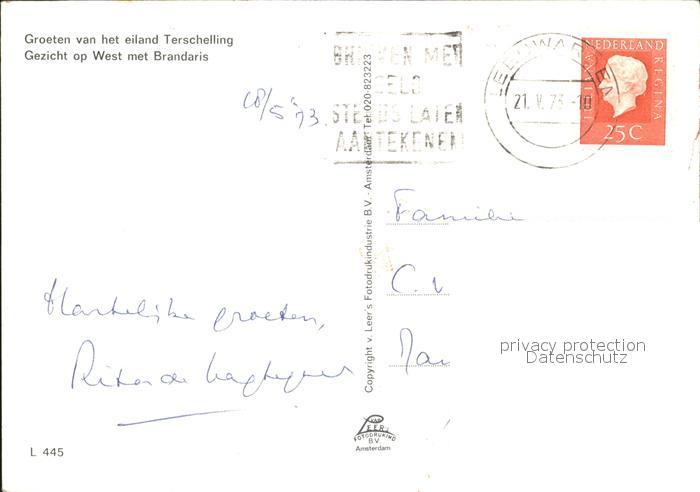 Groeten van het eiland Terschelling
Gezicht op West met Brandaris
BRIEVEN MET
GELD
STEEDS LATEN
AANTEKENEN
LEEUWARDEN
21. V. 73 -10
NEDERLAND
JULIANA REGINA
25 C
/5 '73.
Familie
C. v
Hartelijke groeten,
Rita de
Copyright v. Leer's Fotodrukindustrie B.V. - Amsterdam. Tel: 020-823223
privacy protection
Datenschutz
VAN
LEER'S
FOTODRUKIND
B.V.
Amsterdam
L 445